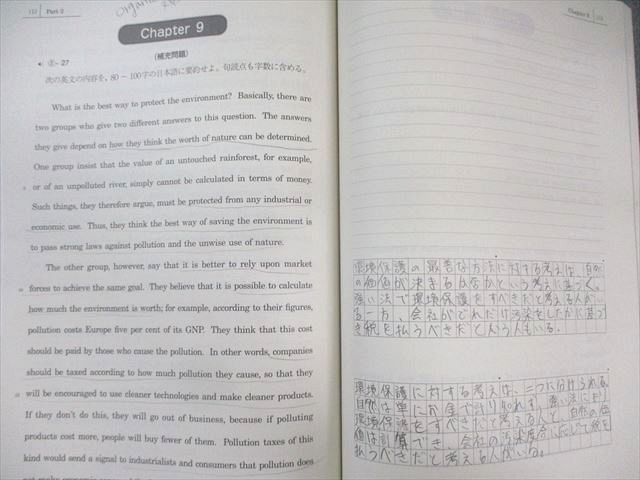 112 Part 2
Chapter 9
②-27
(補充問題)
次の英文の内容を,80-100字の日本語に要約せよ。句読点も字数に含める。
What is the best way to protect the environment? Basically, there are
two groups who give two different answers to this question. The answers
they give depend on how they think the worth of nature can be determined.
One group insist that the value of an untouched rainforest, for example,
or of an unpolluted river, simply cannot be calculated in terms of money.
Such things, they therefore argue, must be protected from any industrial or
economic use. Thus, they think the best way of saving the environment is
to pass strong laws against pollution and the unwise use of nature.
The other group, however, say that it is better to rely upon market
forces to achieve the same goal. They believe that it is possible to calculate
how much the environment is worth; for example, according to their figures,
pollution costs Europe five per cent of its GNP. They think that this cost
should be paid by those who cause the pollution. In other words, companies
should be taxed according to how much pollution they cause, so that they
will be encouraged to use cleaner technologies and make cleaner products.
If they don't do this, they will go out of business, because if polluting
products cost more, people will buy fewer of them. Pollution taxes of this
kind would send a signal to industrialists and consumers that pollution does
Chapter 9
環境保護の最善な方法に対する考えは、自然
の価値が決まるか否かという考えに基づく。
強い法で環境保護をすべきだと考える人がい
る一方、会社がどれだけ汚染をしたかに基づ
き税を払うべきだと人う人もいる。
環境保護に対する考えは、二つに分けられる。
自然は単にお金で計り知れず、強い法により
環境保護をすべきだと考える人と、自然の価
値は計算でき、会社の汚染度合に応じて税を
払うべきだと考える人がいる。